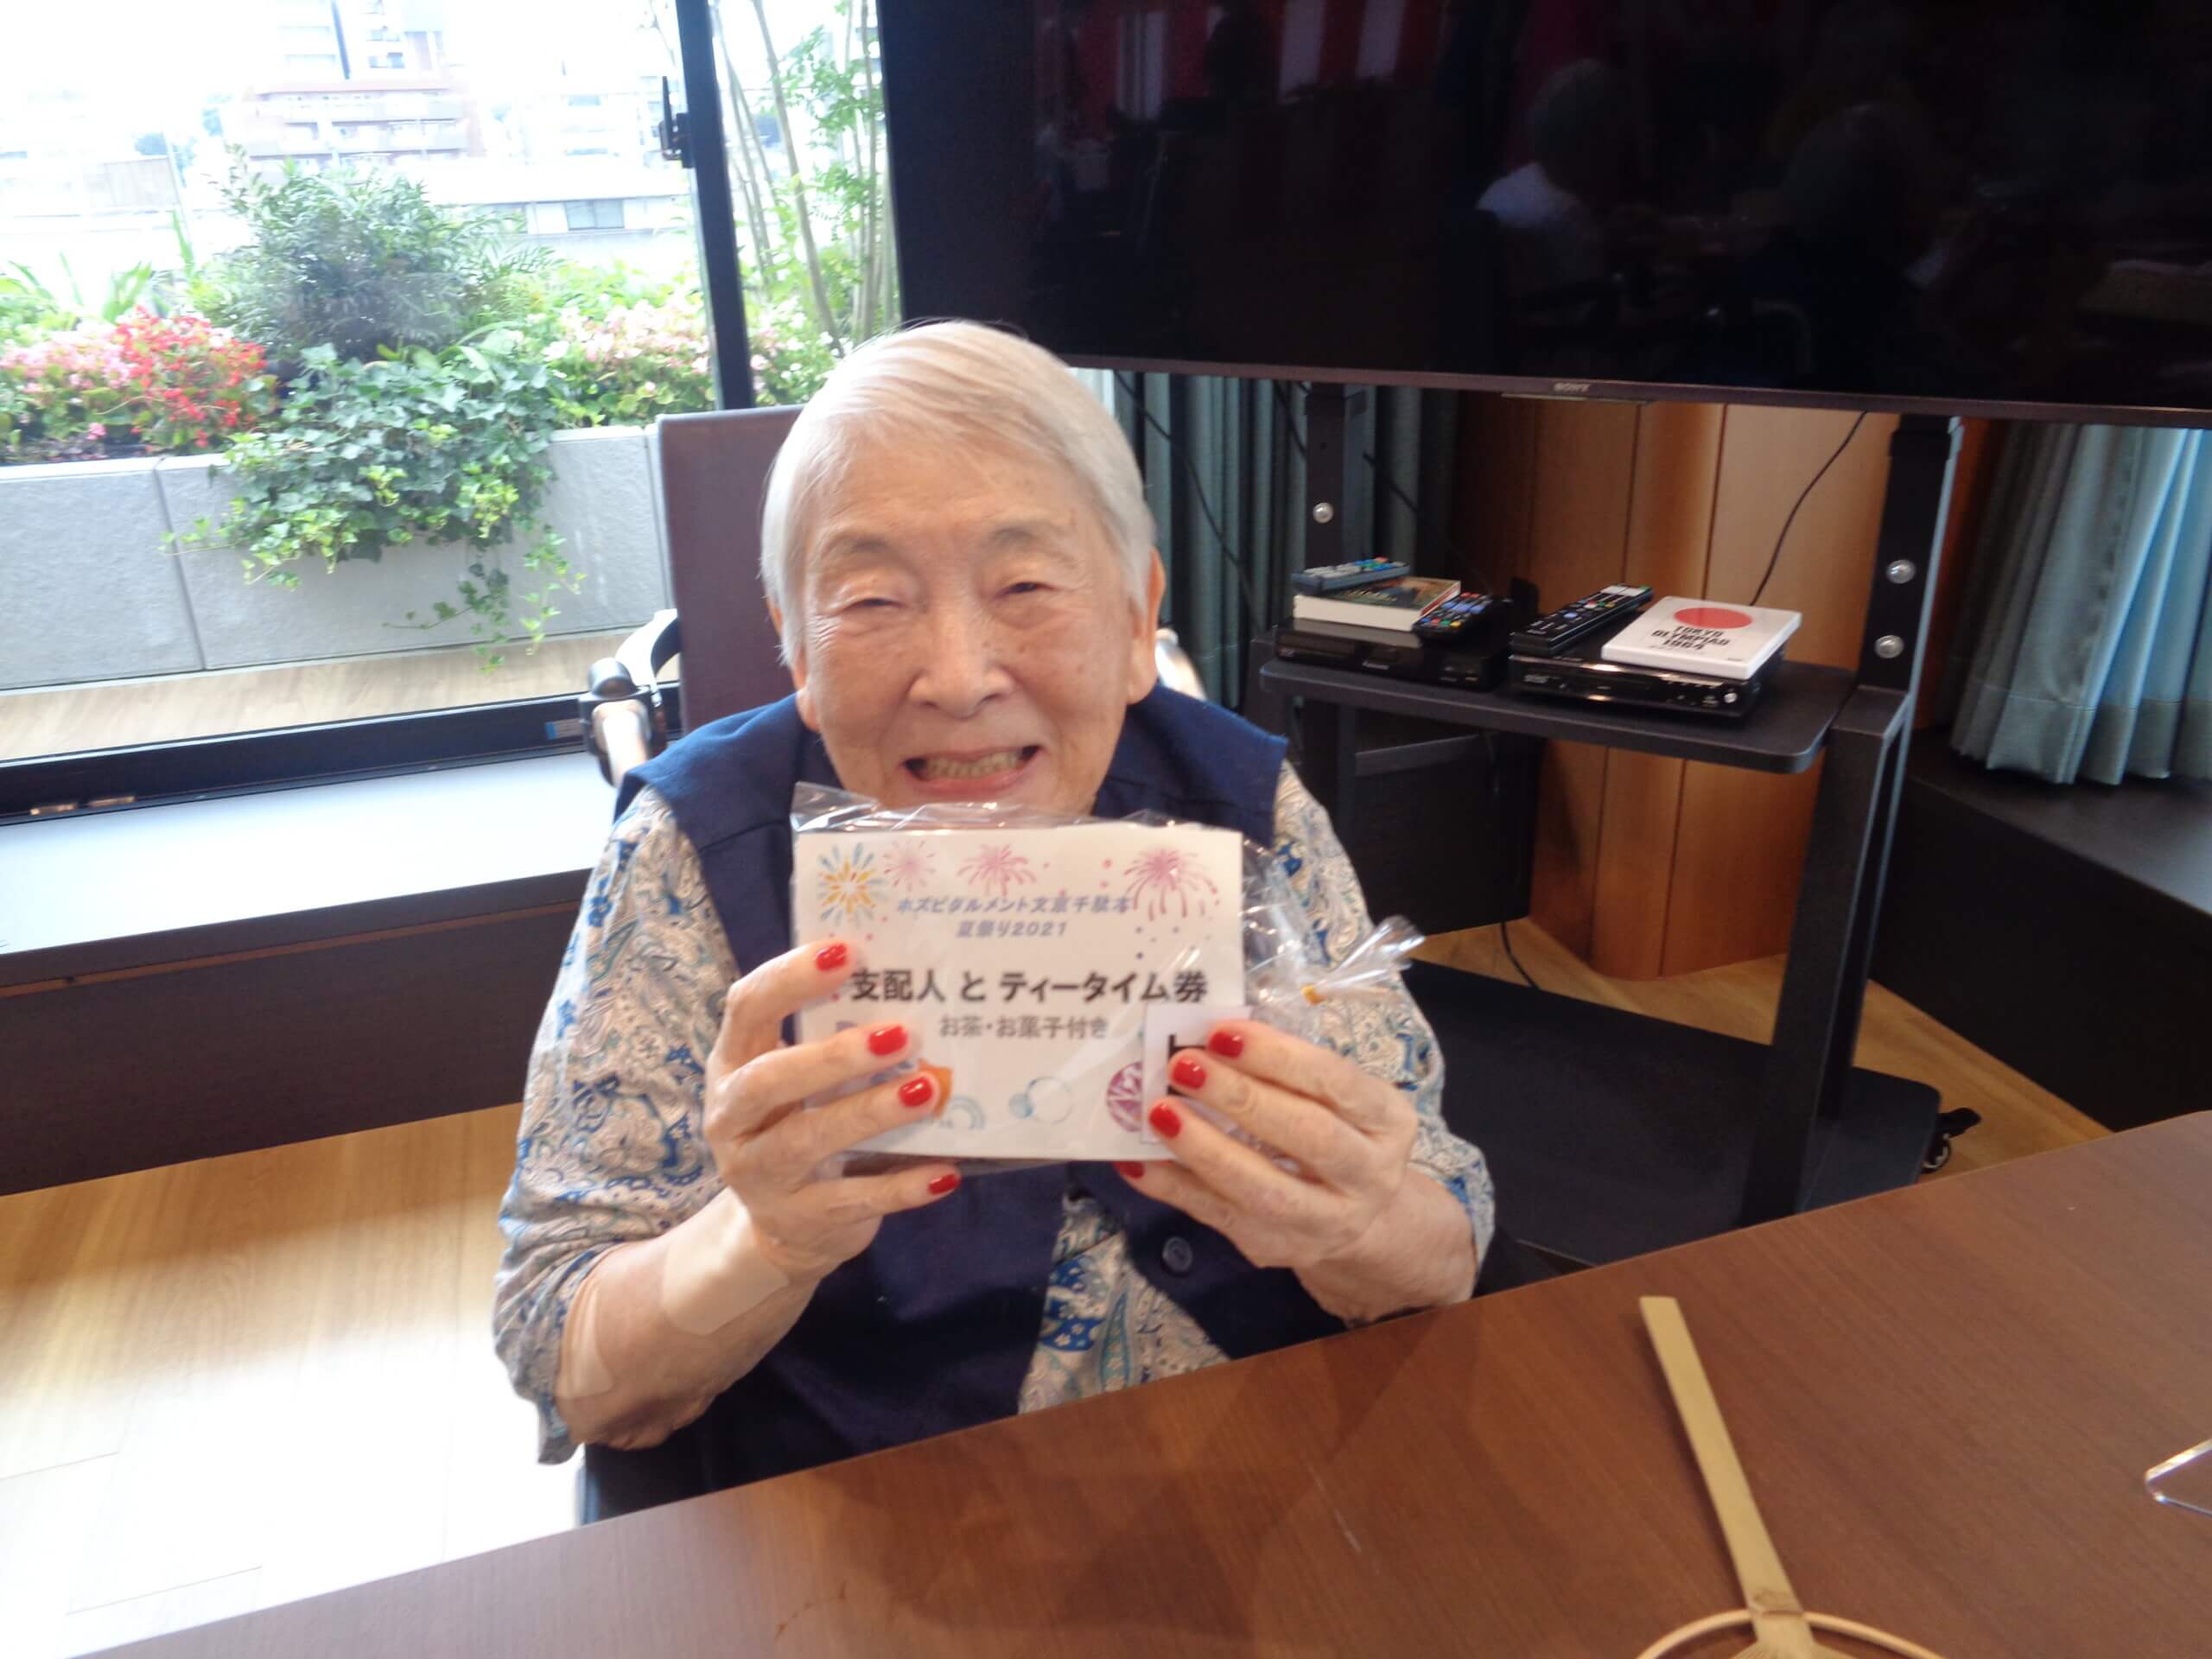 SONY
TOKYO
OLYMPIAD
1964
ホスピタルメント文京千駄木
夏祭り2021
支配人 と ティータイム券
お茶・お菓子付き